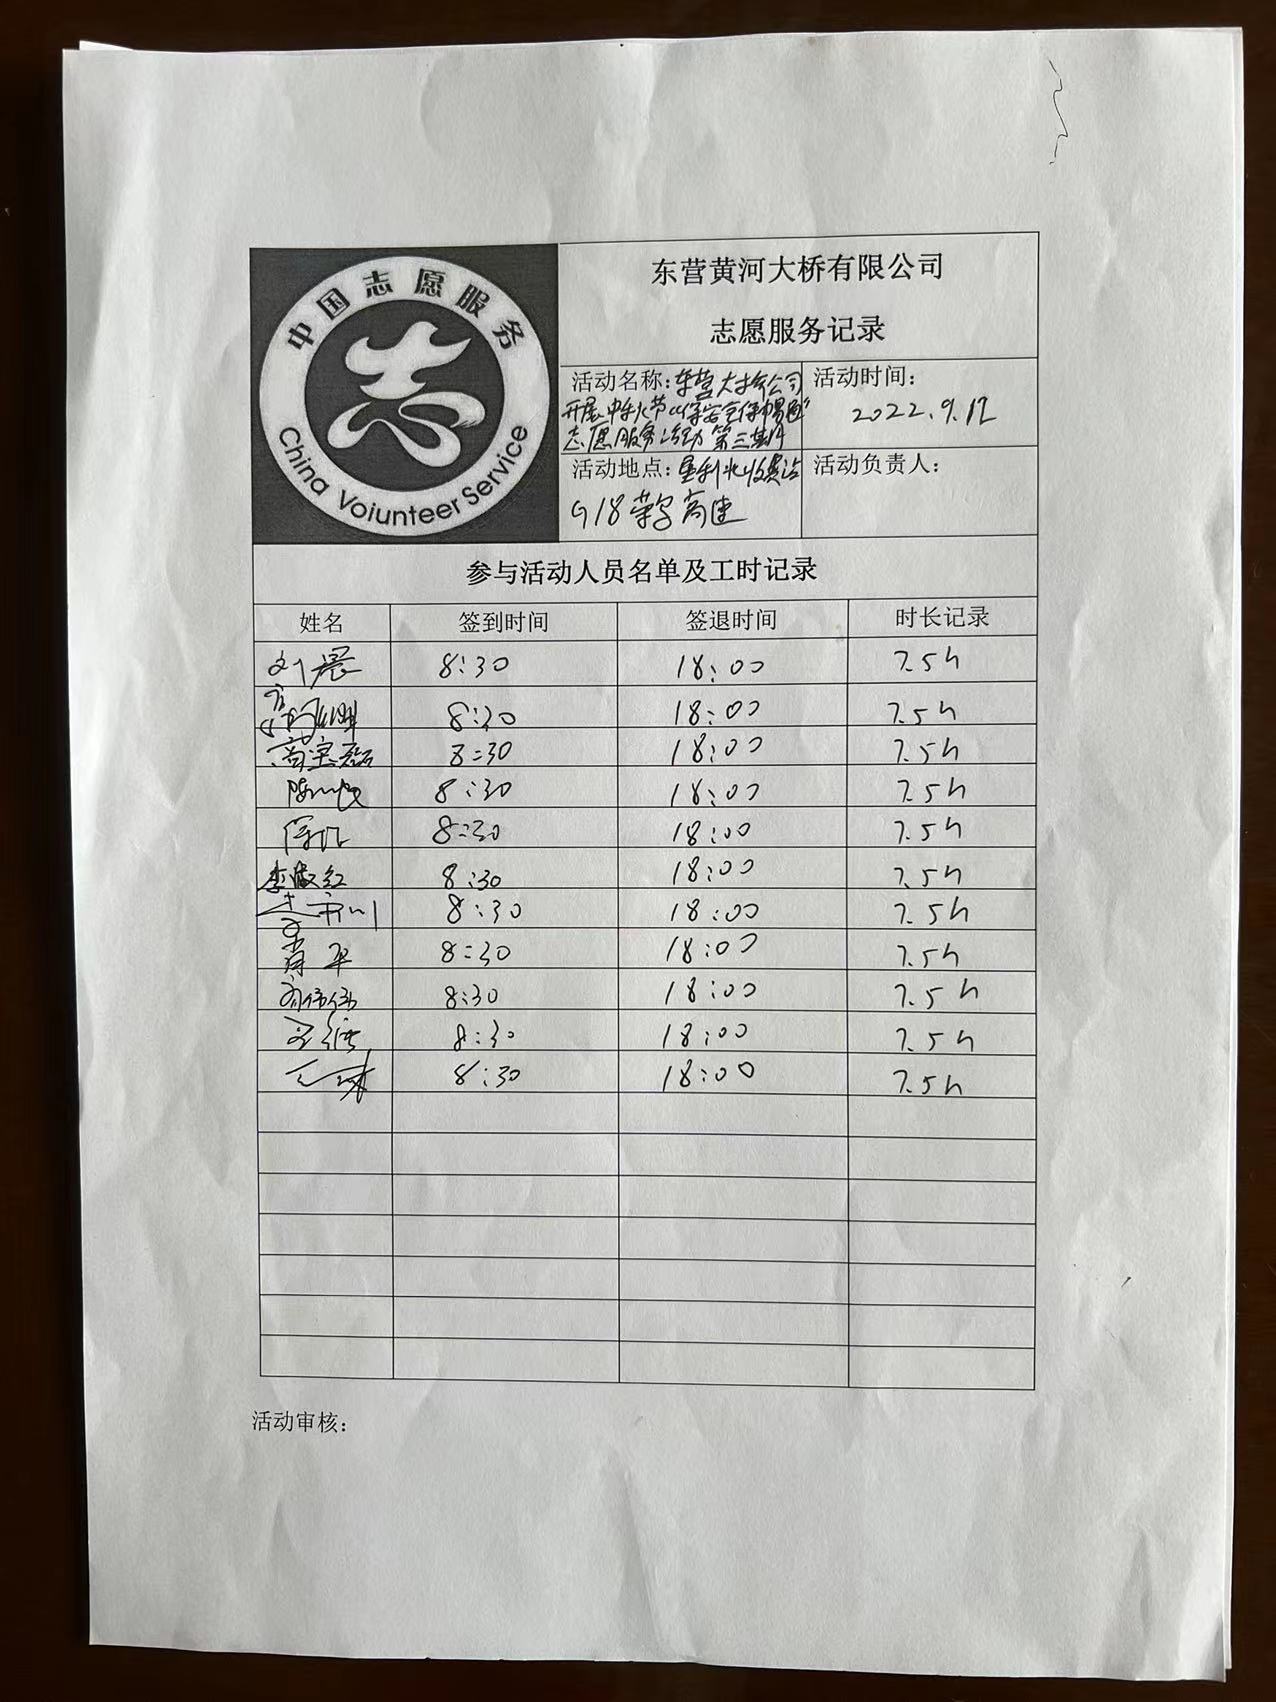 中国志愿服务
China Voiunteer Service
东营黄河大桥有限公司
志愿服务记录
活动名称:东营大桥公司
开展中秋节“保安全保畅通”
志愿服务活动 第三期
活动时间:
2022.9.12
活动地点:垦利北收费站
G18荣乌高速
活动负责人:
参与活动人员名单及工时记录
姓名 签到时间 签退时间 时长记录
刘晨 8:30 18:00 7.5h
8:30 18:00 7.5h
商宝磊 8:30 18:00 7.5h
8:30 18:00 7.5h
8:30 18:00 7.5h
李淑红 8:30 18:00 7.5h
8:30 18:00 7.5h
肖军 8:30 18:00 7.5h
8:30 18:00 7.5h
8:30 18:00 7.5h
8:30 18:00 7.5h
活动审核: